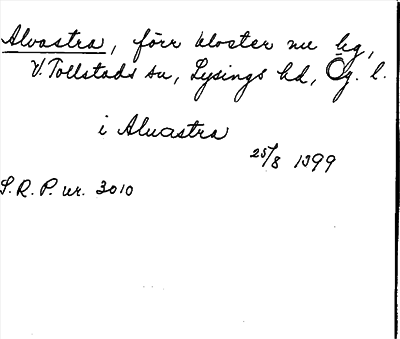 Alvastra, förr kloster nu kg,
V. Tollstads sn, Lysings hd, Ög. l.
i Alvastra
25/8 1399
S.R.P. nr. 3010